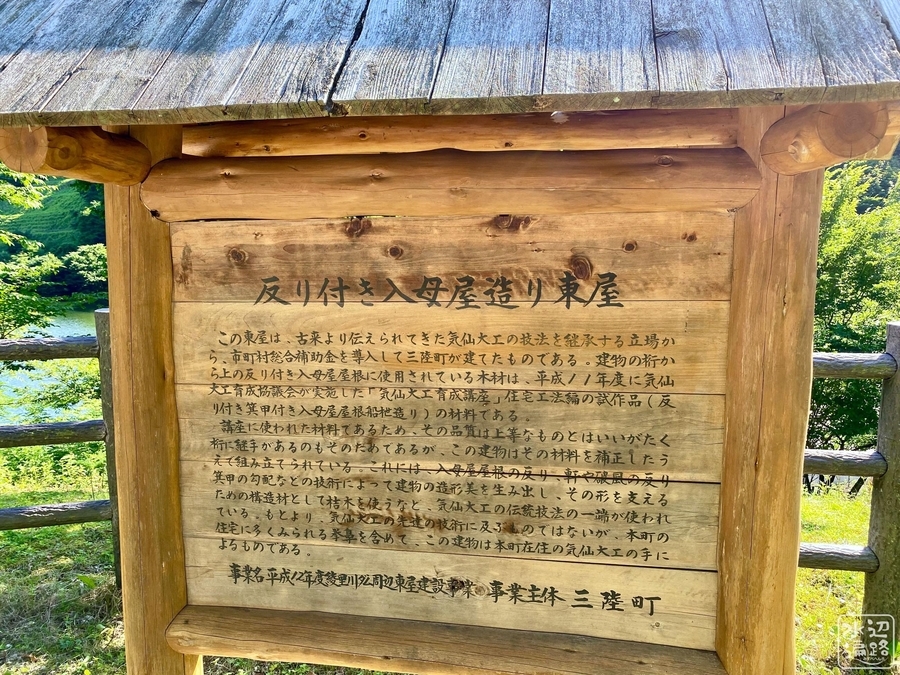 反り付き入母屋造り東屋
この東屋は、古来より伝えられてきた気仙大工の技法を継承する立場か
ら、市町村総合補助金を導入して三陸町が建てたものである。建物の桁か
ら上の反り付き入母屋屋根に使用されている木材は、平成11年度に気仙
大工育成協議会が実施した「気仙大工育成講座」住宅工法編の試作品（反
り付き箕甲付き入母屋屋根船枻造り）の材料である。
講座に使われた材料であるため、その品質は上等なものとはいいがたく
桁に継手があるのもそのためであるが、この建物はその材料を補正したう
えで組み立てられている。これには、入母屋屋根の反り、軒や破風の反り
箕甲の勾配などの技術によって建物の造形美を生み出し、その形を支える
ための構造材として桔木を使うなど、気仙大工の伝統技法の一端が使われ
ている。もとより、気仙大工の先達の技術に及ぶものではないが、本町の
住宅に多くみられる拳鼻を含めて、この建物は本町在住の気仙大工の手に
よるものである。
事業名 平成12年度綾里川ダム周辺東屋建設事業 事業主体 三陸町
水辺
遍路